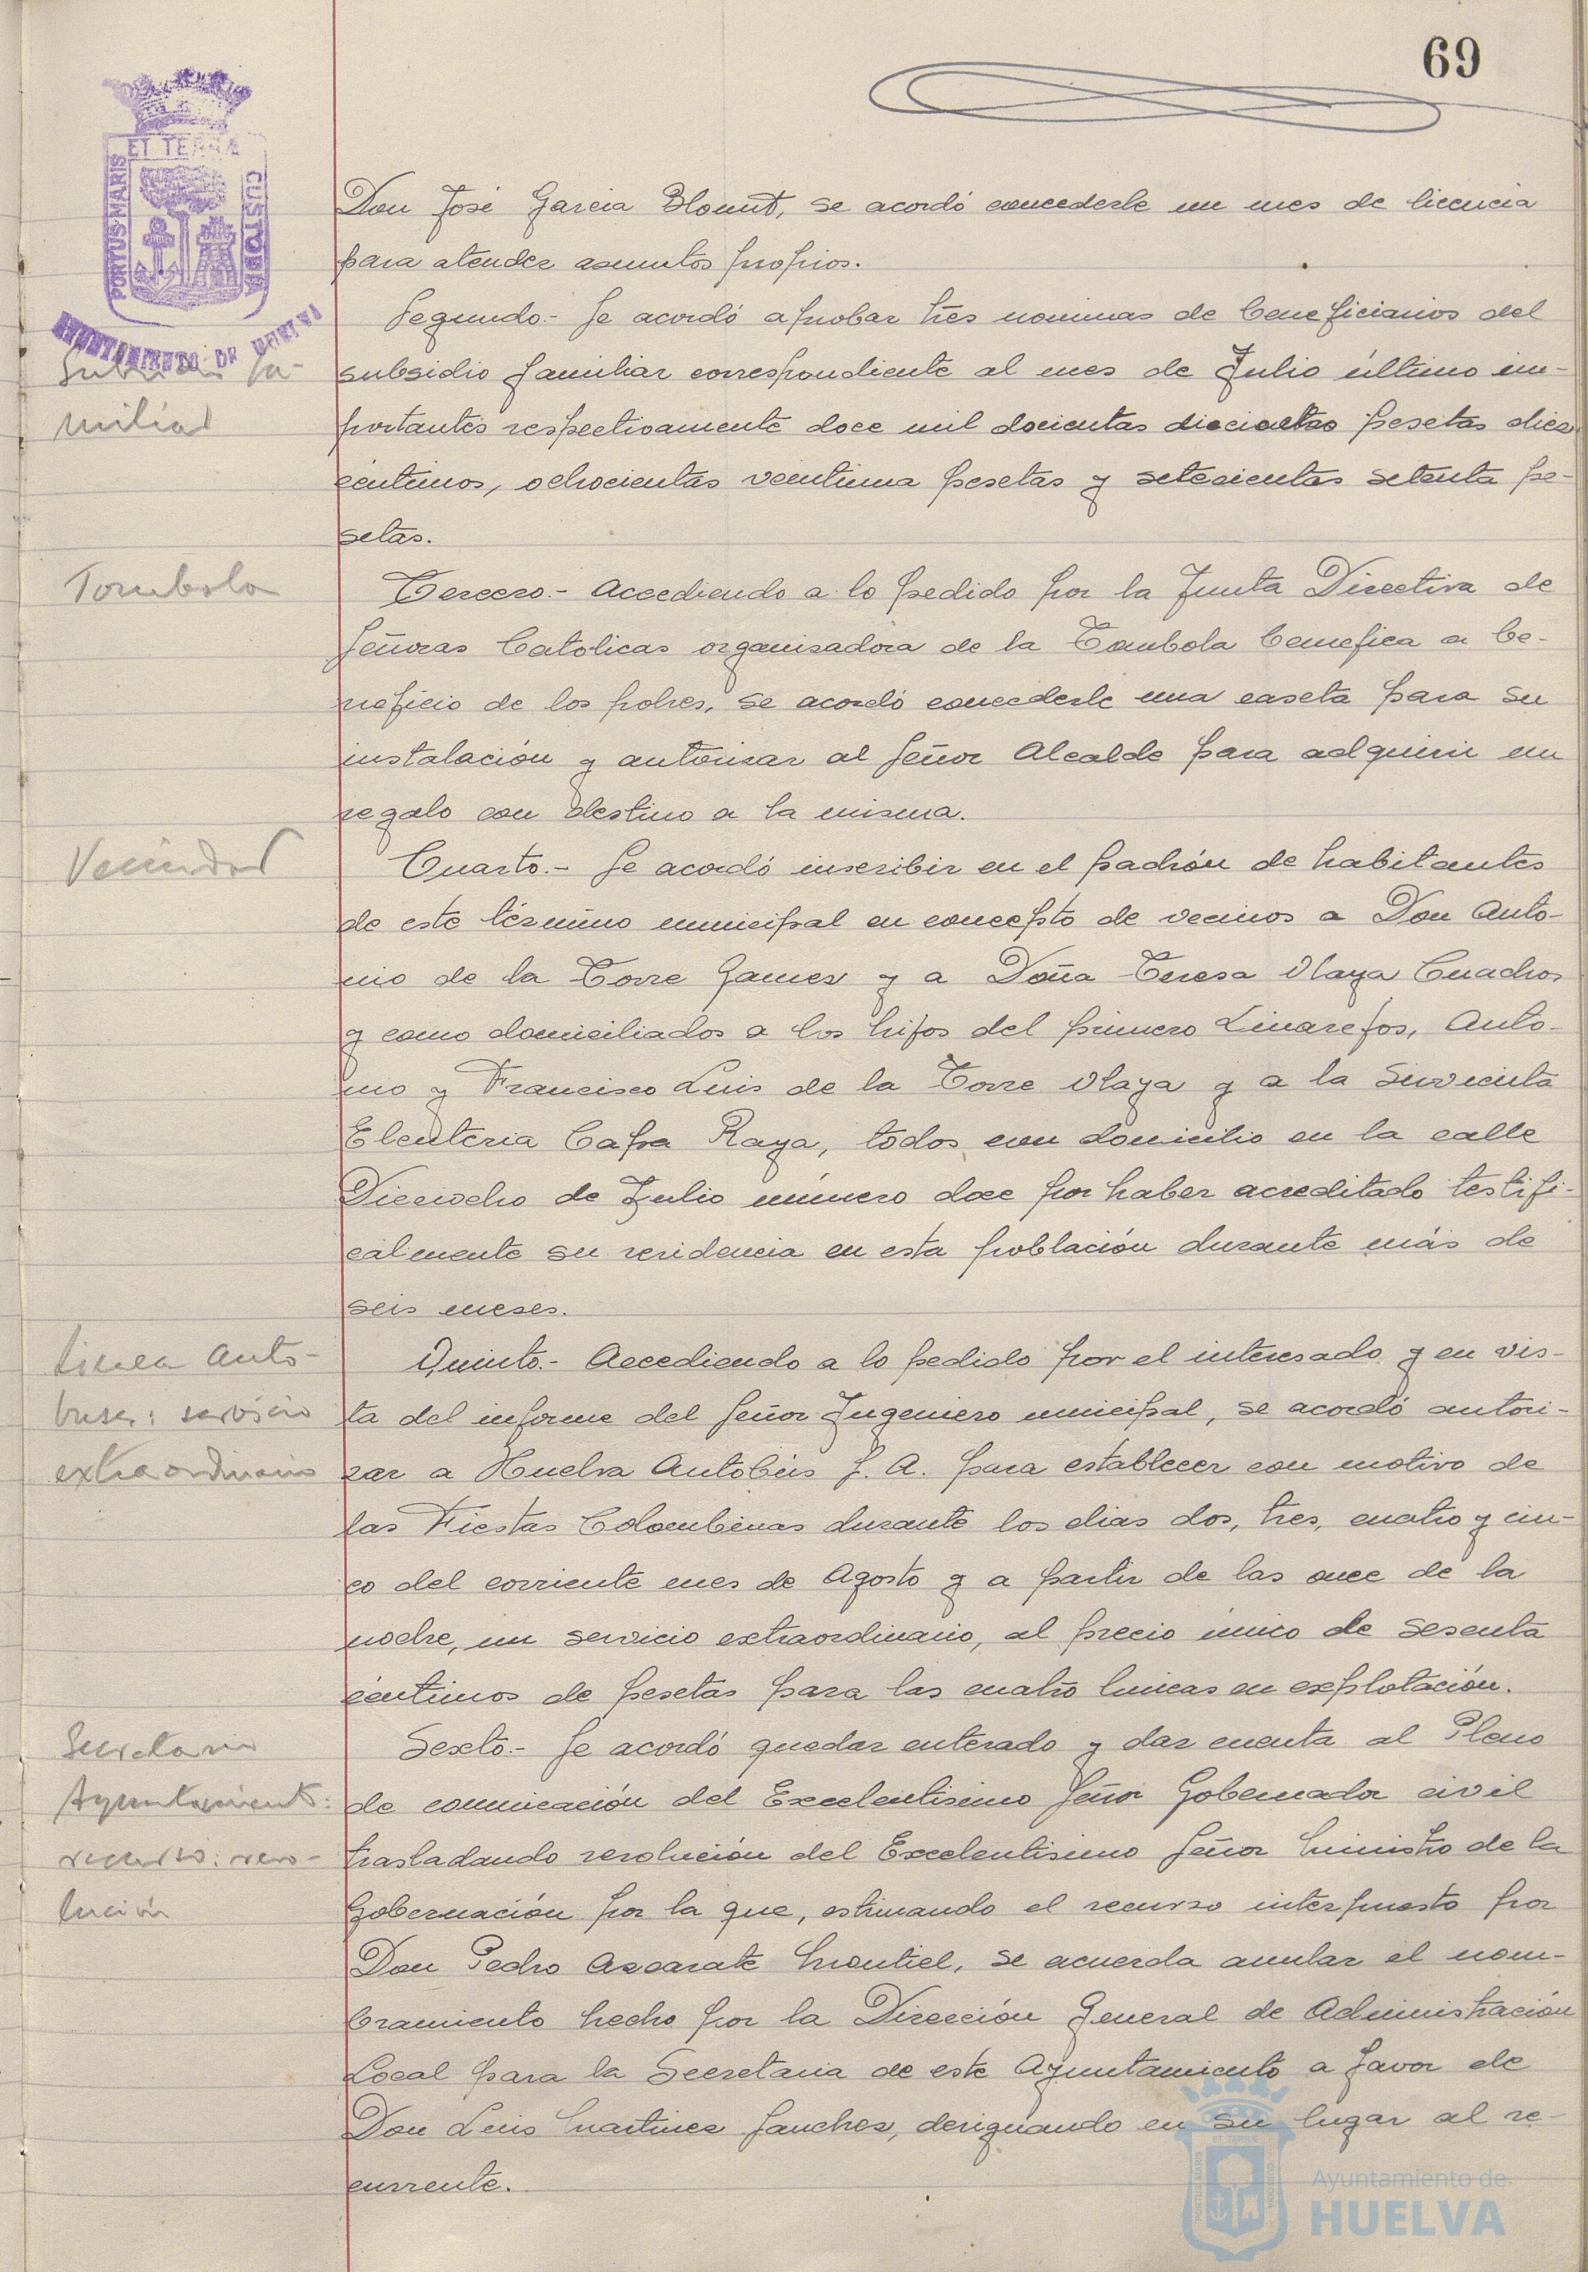 69
ET TERRÆ
PORTUS MARIS
CUSTODIA
AYUNTAMIENTO DE HUELVA
Don José Garcia Blount, se acordó concederle un mes de licencia
para atender asuntos propios.
Segundo.- Se acordó aprobar tres nominas de beneficiarios del
Subsidio fa-
subsidio familiar correspondiente al mes de Julio último im-
miliar
portantes respectivamente doce mil docientas dieciocho pesetas diez
céntimos, ochocientas veintiuna pesetas y setecientas setenta pe-
setas.
Tombola
Tercero.- Accediendo a lo pedido por la Junta Directiva de
Señoras Catolicas organisadora de la Tombola benefica a be-
neficio de los pobres, se acordó concederle una caseta para su
instalación y autorizar al Señor Alcalde para adquirir un
regalo con destino a la misma.
Vecindad
Cuarto.- Se acordó inscribir en el padrón de habitantes
de este término municipal en concepto de vecinos a Don Anto-
nio de la Torre Gamez y a Doña Teresa Olaya Cuadros
y como domiciliados a los hijos del primero Linarejos, Anto-
nio y Francisco Luis de la Torre Olaya y a la sirvienta
Eleuteria Capa Raya, todos con domicilio en la calle
Dieciocho de Julio número doce por haber acreditado testifi-
calmente su residencia en esta población durante más de
seis meses.
Linea Auto-
Quinto.- Accediendo a lo pedido por el interesado y en vis-
buses: servicio
ta del informe del Señor Ingeniero municipal, se acordó autori-
extraordinario
zar a Huelva Autobús S. A. para establecer con motivo de
las Fiestas Colombinas durante los dias dos, tres, cuatro y cin-
co del corriente mes de Agosto y a partir de las once de la
noche, un servicio extraordinario, al precio único de sesenta
céntimos de pesetas para las cuatro lineas en explotación.
Secretario
Sexto.- Se acordó quedar enterado y dar cuenta al Pleno
Ayuntamiento:
de comunicación del Excelentisimo Señor Gobernador civil
recurso: reso-
trasladando resolución del Excelentisimo Señor Ministro de la
lución
Gobernación por la que, estimando el recurso interpuesto por
Don Pedro Azcarate Montiel, se acuerda anular el nom-
bramiento hecho por la Dirección General de Administración
Local para la Secretaria de este Ayuntamiento a favor de
Don Luis Martinez Sanchez, designando en su lugar al re-
currente.
Ayuntamiento de
HUELVA